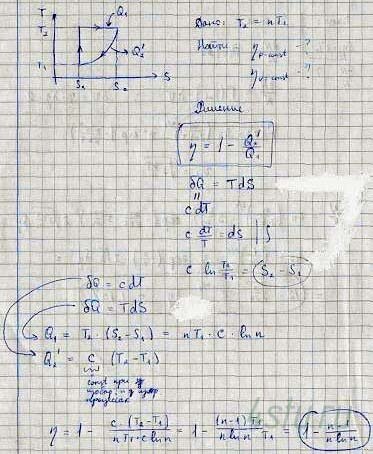 T
T₂
T₁
S₁ S₂ S
Q₁
Q₂'
Дано: T₂ = nT₁
Найти: η p-const - ?
η v-const - ?
Решение
η = 1 - Q₂'/Q₁
δQ = TdS
"
cdT
c dT/T = dS | ∫
c ln T₂/T₁ = S₂ - S₁
δQ = cdT
δQ = TdS
Q₁ = T₂ · (S₂ - S₁) = nT₁ · c · ln n
Q₂' = c · (T₂ - T₁)
const при
процессах
η = 1 - c · (T₂ - T₁)/nT₁ · c ln n = 1 - (n-1) T₁/n ln n T₁ = 1 - n-1/n ln n